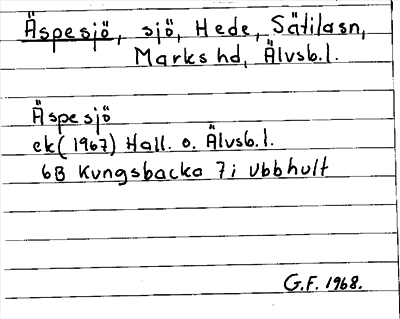 Äspesjö, sjö, Hede, Sätilasn,
Marks hd, Älvsb.l.
Äspesjö
ek(1967) Hall. o. Älvsb.l.
6B Kungsbacka 7i Ubbhult
G.F. 1968.